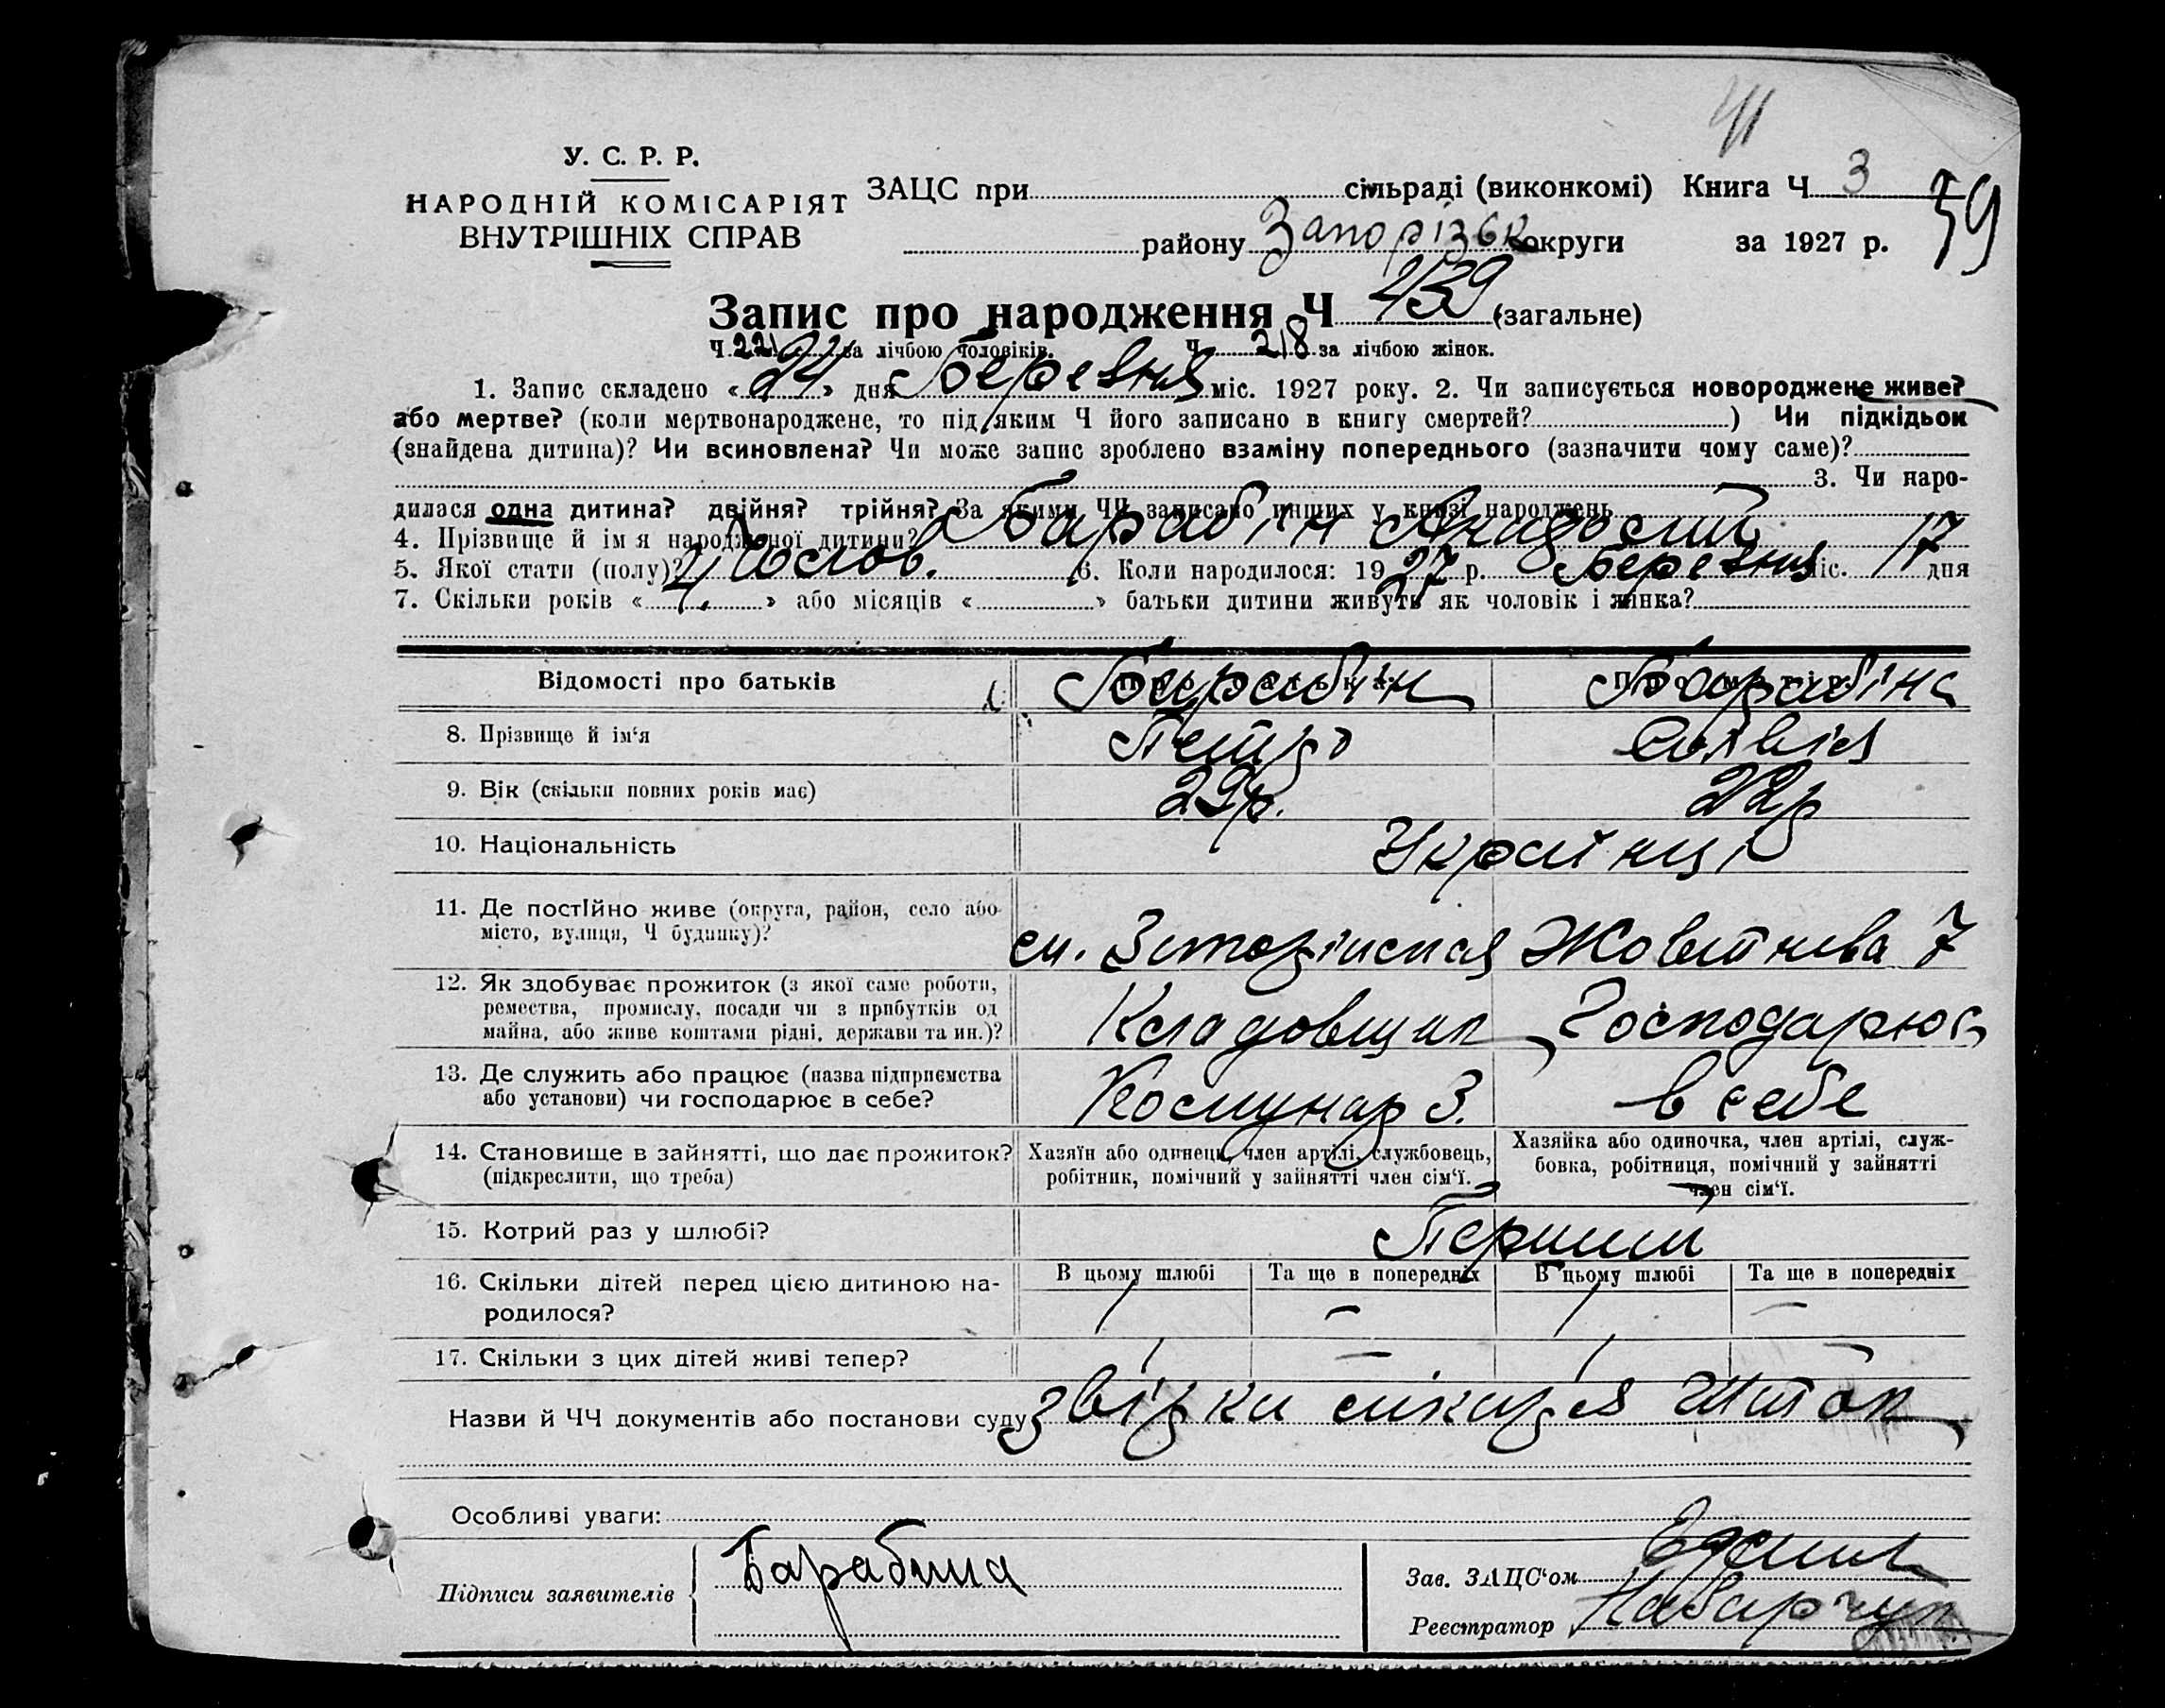 У. С. Р. Р.
НАРОДНІЙ КОМІСАРІЯТ
ВНУТРІШНІХ СПРАВ
ЗАЦС при сільраді (виконкомі) Книга Ч 3
району Запорізьк округи за 1927 р. 59
Запис про народження Ч 439 (загальне)
Ч 221 за лічбою чоловіків. Ч 218 за лічбою жінок.
1. Запис складено «24» дня Березня міс. 1927 року. 2. Чи записується новороджене живе?
або мертве? (коли мертвонароджене, то під яким Ч його записано в книгу смертей? ) Чи підкідьок
(знайдена дитина)? Чи всиновлена? Чи може запис зроблено взаміну попереднього (зазначити чому саме)?
3. Чи наро-
дилася одна дитина? двійня? трійня? За якими ЧЧ записано инших у книзі народжень
4. Прізвище й ім я народженої дитини? Барабін
5. Якої стати (полу)? Чолов. 6. Коли народилося: 1927 р. Березня міс. 17 дня
7. Скільки років « » або місяців « » батьки дитини живуть як чоловік і жінка?
Відомості про батьків Барабін Барабіна
8. Прізвище й ім‘я Петро
9. Вік (скільки повних років має) 29р. 22р
10. Національність Українці
11. Де постійно живе (округа, район, село або
місто, вулиця, Ч будинку)? Жовтнева 7
12. Як здобуває прожиток (з якої саме роботи,
ремества, промислу, посади чи з прибутків од
майна, або живе коштами рідні, держави та ин.)? Кладовщик Господарює
13. Де служить або працює (назва підприємства
або установи) чи господарює в себе? Комунар З. в себе
14. Становище в зайнятті, що дає прожиток?
(підкреслити, що треба)
Хазяїн або одинець, член артілі, службовець,
робітник, помічний у зайнятті член сім‘ї.
Хазяйка або одиночка, член артілі, служ-
бовка, робітниця, помічний у зайнятті
член сім‘ї.
15. Котрий раз у шлюбі? Перший
16. Скільки дітей перед цією дитиною на-
родилося?
В цьому шлюбі Та ще в попередніх В цьому шлюбі Та ще в попередніх
1 – 1 –
17. Скільки з цих дітей живі тепер? 1 – 1 –
Назви й ЧЧ документів або постанови суду
Особливі уваги:
Підписи заявителів Барабина
Зав. ЗАЦС‘ом
Реєстратор